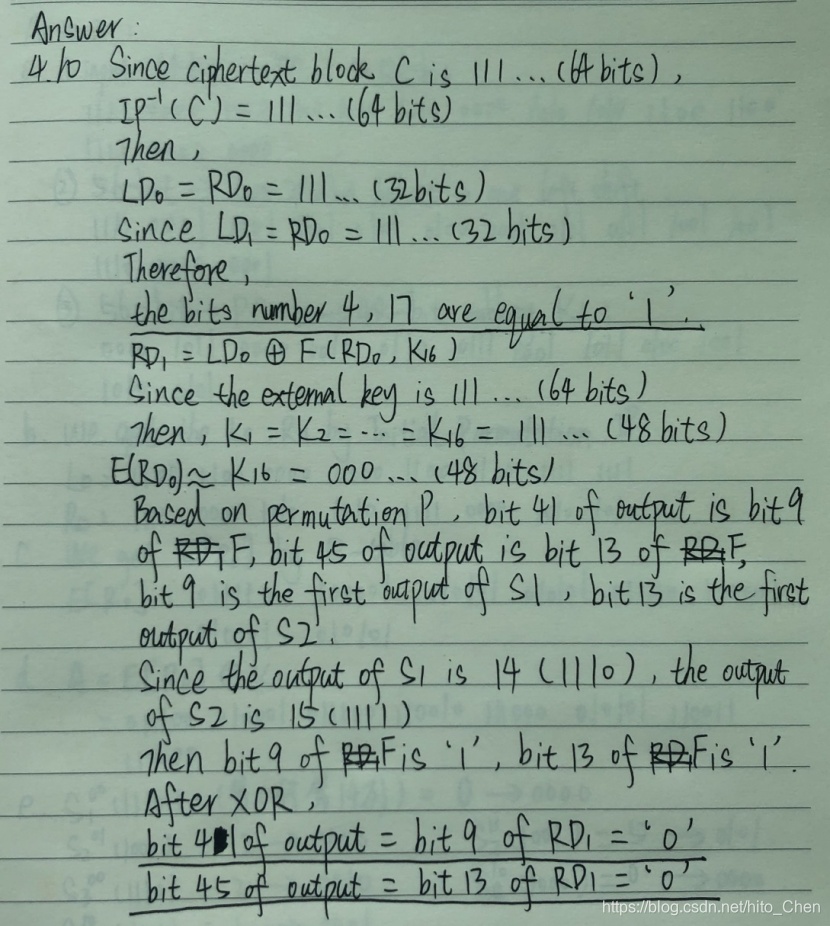 Answer:
4.10 Since ciphertext block C is 111... (64 bits),
IP⁻¹(C) = 111... (64 bits)
Then,
LD₀ = RD₀ = 111... (32 bits)
Since LD₁ = RD₀ = 111... (32 bits)
Therefore,
the bits number 4, 17 are equal to '1'.
RD₁ = LD₀ ⊕ F(RD₀, K16)
Since the external key is 111... (64 bits)
Then, K₁ = K₂ = ... = K₁₆ = 111... (48 bits)
E(RD₀) ≈ K16 = 000... (48 bits)
Based on permutation P, bit 41 of output is bit 9
of F, bit 45 of output is bit 13 of F,
bit 9 is the first output of S1, bit 13 is the first
output of S2.
Since the output of S1 is 14 (1110), the output
of S2 is 15 (1111)
Then bit 9 of F is '1', bit 13 of F is '1'.
After XOR,
bit 41 of output = bit 9 of RD₁ = '0'
bit 45 of output = bit 13 of RD₁ = '0'
https://blog.csdn.net/hito_Chen